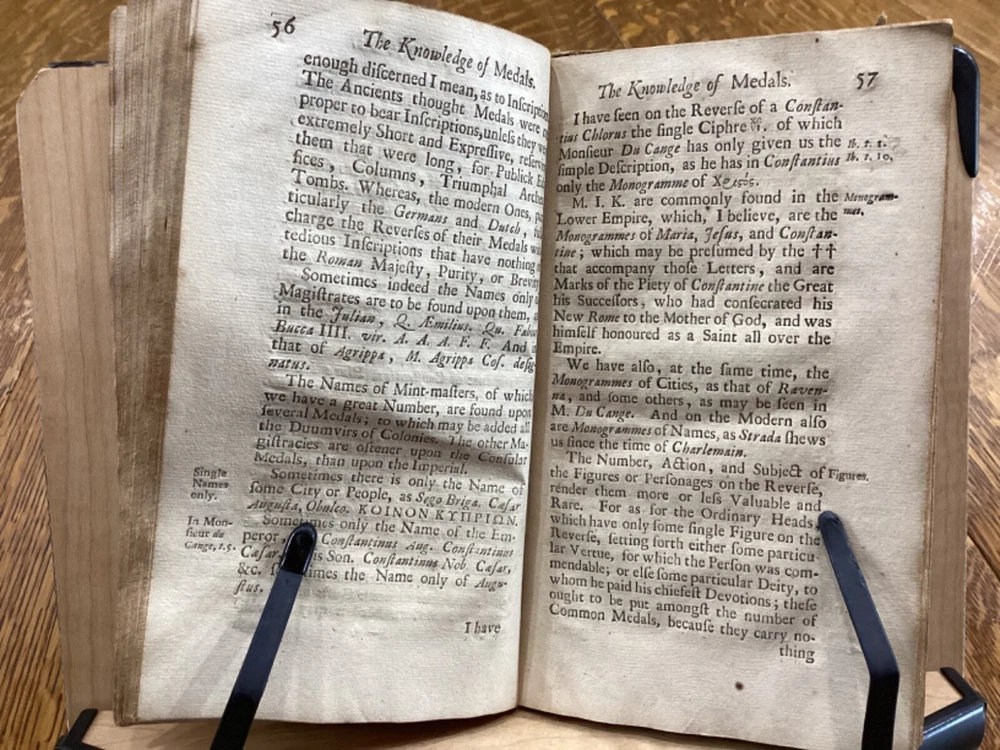 56
The Knowledge of Medals.
enough discerned I mean, as to
The Ancients thought Medals were
proper to bear Inscriptions, unless they
extremely Short and Expressive,
them that were long, for Publick
fices, Columns, Triumphal
Tombs. Whereas, the modern Ones,
ticularly the Germans and Dutch,
charge the Reverses of their Medals
tedious Inscriptions that have nothing
the Roman Majesty, Purity, or
Sometimes indeed the Names only
Magistrates are to be found upon them,
in the Julian, Q. Æmilius. Qu.
Bucca IIII. vir. A. A. A. F. F. And
that of Agrippa, M. Agrippa Cos. desig-
natus.
The Names of Mint-masters, of which
we have a great Number, are found upon
several Medals; to which may be added all
the Duumvirs of Colonies. The other Ma-
gistracies are oftener upon the Consular
Medals, than upon the Imperial.
Single
Names
only.
Sometimes there is only the Name of
some City or People, as Sego Briga. Cæsar
Augusta, Obulco. ΚΟΙΝΟΝ ΚΥΠΡΙΩΝ.
In Mon-
sieur du
Cange, t. 5.
Sometimes only the Name of the Em-
peror, Constantinus Aug. Constantinus
Cæsar, is Son. Constantinus Nob. Cæsar,
&c. times the Name only of Augu-
stus.
I have
The Knowledge of Medals. 57
I have seen on the Reverse of a Constan-
tius Chlorus the single Ciphre of which
Monsieur Du Cange has only given us the
simple Description, as he has in Constantius
only the Monogramme of
Ib. t. 1.
Ib. t. 10,
M. I. K. are commonly found in the
Lower Empire, which, I believe, are the
Monogrammes of Maria, Jesus, and Constan-
tine; which may be presumed by the ††
that accompany those Letters, and are
Marks of the Piety of Constantine the Great
his Successors, who had consecrated his
New Rome to the Mother of God, and was
himself honoured as a Saint all over the
Empire.
Monogram-
mes.
We have also, at the same time, the
Monogrammes of Cities, as that of Raven-
na, and some others, as may be seen in
M. Du Cange. And on the Modern also
are Monogrammes of Names, as Strada shews
us since the time of Charlemain.
The Number, Action, and Subject of
the Figures or Personages on the Reverse,
render them more or less Valuable and
Rare. For as for the Ordinary Heads,
which have only some single Figure on the
Reverse, setting forth either some particu-
lar Vertue, for which the Person was com-
mendable; or else some particular Deity, to
whom he paid his chiefest Devotions; these
ought to be put amongst the number of
Common Medals, because they carry no-
thing
Figures.